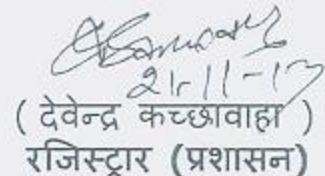 21-11-17
( देवेन्द्र कच्छावाहा )
रजिस्ट्रार (प्रशासन)